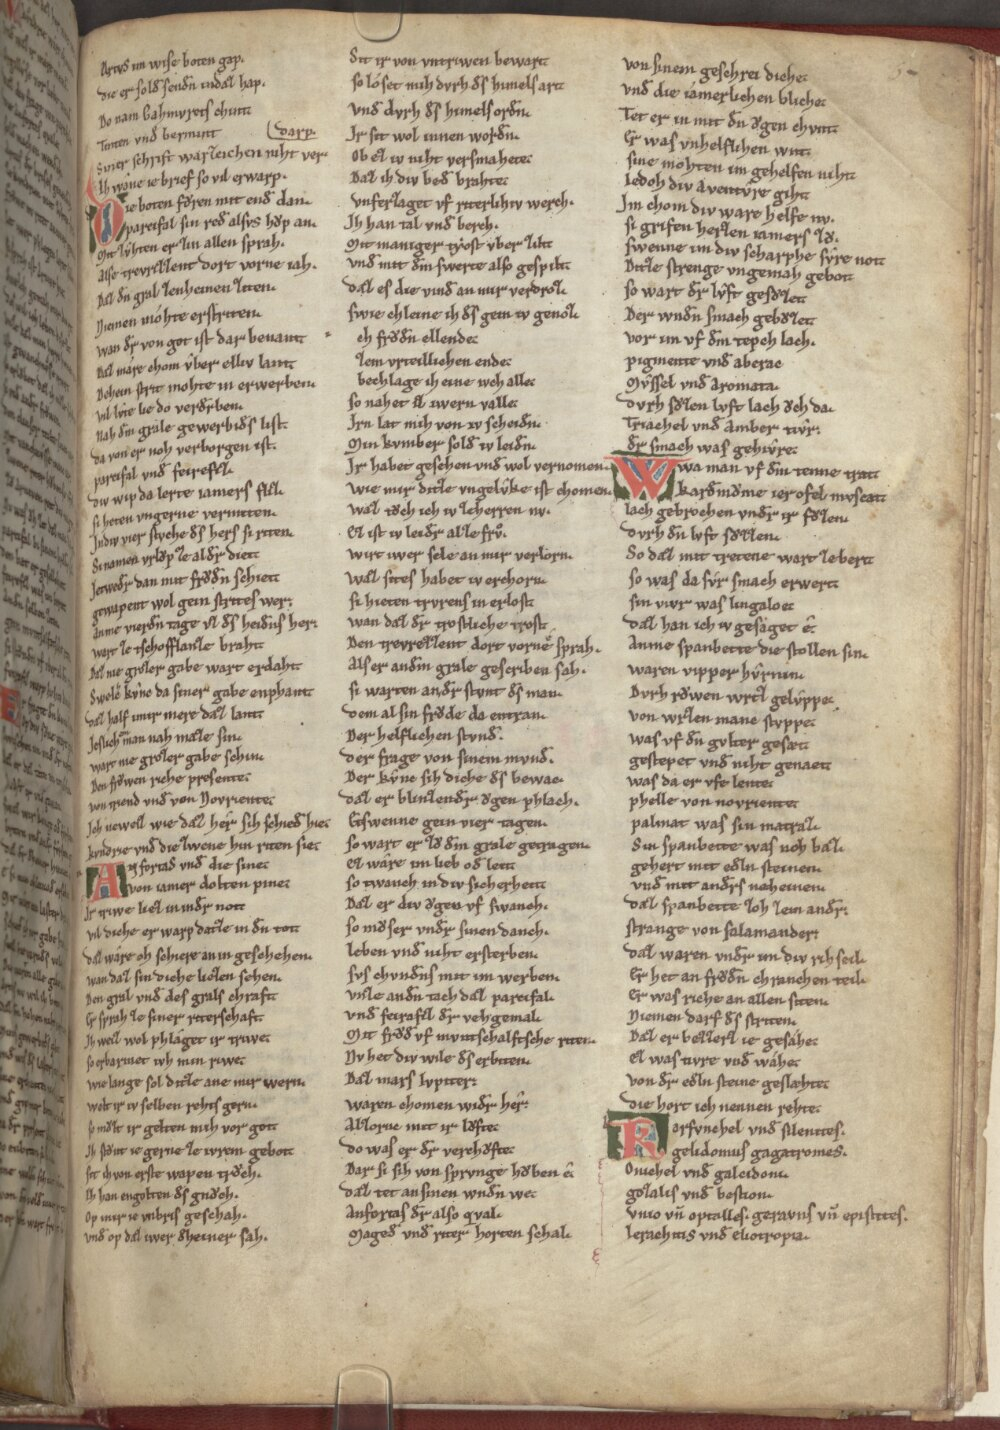 Artvs im wise boten gap.
die er sold sendn indaz hap.
Do nam Gahmvrets chint
Tinten vnd bermint
Siner schrift war leichen niht ver darp.
Ih wæne ie brief so vil erwarp.
Die boten fvren mit end dan.
parcifal sin red alsvs hvp an.
Mit lvhten er zin allen sprah.
alse trevrezzent dort vorne iah.
Daz dn gral zenheinen ziten.
Niemen mohte erstriten.
wan dr von got ist dar benant
Daz mære chom vber elliv lant
Dehein strit mohte in erwerben.
vil lvte lie do verdrben.
Nah dm grale gewerbds list.
da von er noh verborgen ist.
parcifal vnd feirefiz.
div wip da lerte iamers fliz.
si heten vngerne vermiten.
Indiv vier stvche ds hers si riten.
Si namen vrlop ze aldr diet
Ietwedr dan mit frodn schiet
gewapent wol gein strites wer.
Anme vierdn tage vz ds heidns her.
wart ze tschofflanze braht
Daz nie grozer gabe wart erdaht
Swelh kvne da siner gabe enphant
daz half imir mere daz lant
Ieslich man nah maze sin.
wart nie grozer gabe schin.
Den frowen riche presente.
von triend vnd von Novriente.
Ich neweiz wie daz her sih schied hie.
kvndrie vnd die zwene hin riten sie.
Anfortas vnd die sine.
von iamer dolten pine.
Ir triwe liez in indr not
vil diche er warp datze in dn tot
daz wære oh schiere an im geschehen.
wan daz sin diche liezen sehen.
Den gral vnd des grals chraft
Er sprah ze siner riterschaft
Ih weiz wol phlæget ir triwe.
so erbarmet ivh min riwe.
wie lange sol ditze ane mir wern.
welt ir iv selben rehts gern.
so mvzt ir gelten mih vor got
Ih stvnt ie gerne ze iwrem gebot
sit ih von erste wapen trvch.
Ih han engolten ds gnvch.
Op mir ie vnbris geschah.
vnd op daz iwer dheiner sah.
Sit ir von vntriwen bewart
so lóset mih dvrh ds himels art
vnd dvrh ds himels ordn.
Ir sit wol innen wordn.
Ob ez iv niht versmahete.
Daz ih div bed brahte.
vnferzaget vf riterlihiv werch.
Ih han tal vnd berch.
Mit maniger tyost vber zilt
vnd mit dm swerte also gespilt
daz es die vind an mir verdroz.
swie chleine ih ds gein iv genoz
ch frodn ellende.
zem vrteillichen ende.
bechlage ih eine ivch alle.
so nahet ez iwern valle.
Irn lat mih von iv scheidn.
Min kvmber sold iv leidn.
Ir habet gesehen vnd wol vernomen.
wie mir ditze vngelvke ist chomen.
waz tovch ich iv zeherren nv.
Ez ist iv leidr alze frv.
wirt iwer sele an mir verlorn.
waz sites habet iv erchorn.
si hieten trvrens in erlost
wan daz dr trostliche trost
Den trevrezzent dort vorne sprah.
Alser andm grale gescriben sah.
si warten andr stvnt ds man.
dem al sin frode da entran.
Der helflichen stvnd.
der frage von sinem mvnd.
Der kvne sih diche ds bewae.
daz er blinzendr ovgen phlach.
Etswenne gein vier tagen.
so wart er zv dm grale getragen.
Ez wære im lieb od leit
so twanch in div sicherheit
Daz er div ovgen vf swanch.
so mvser vndr sinen danch.
leben vnd niht ersterben.
svs chvndns mit im werben.
vnze andn tach daz parcifal.
vnd feirafiz dr vehgemal.
Mit frodn vf mvntschalfsche riten.
Nv het div wile ds erbiten.
Daz mars Ivpiter.
waren chomen widr her.
Al zorne mit ir lofte.
do was er dr verchofte.
Dar si sih von sprvnge hvben e
daz tet an sinen wndn we.
Anfortas dr also qval.
Maged vnd riter horten schal.
von sinem geschrei diche.
vnd die iamerlichen bliche.
Tet er in mit dn ovgen chvnt
Er was vnhelflichen wnt.
sine mohten im gehelfen niht
Iedoh div aventvre giht
Im chom div ware helfe nv.
si grifen herzen iamers zv.
swenne im div scharphe svre not
Ditze strenge vngemah gebot
so wart dr lvft gesvzet
Der wndn smach gebvzet
vor im vf dm tepch lach.
pigmente vnd aberae
Mvssel vnd Aromata.
dvrh svzen lvft lach och da.
Triachel vnd Amber tivr.
dr smach was gehivre.
Swa man vf dm tenne trat
kardmome ierofel mvscat
lach gebrochen vndr ir fvzen.
dvrh dn lvft svzzen.
So daz mit tretene wart zebert
so was da svr smach erwert
sin vivr was lingaloe.
daz han ich iv gesaget e.
Anme spanbette die stollen sin.
waren vipper hvrnin.
Dvrh rowen wrtz gelvppe.
von wrzen mane stvppe.
was vf dn gvlter gesæt.
gestepet vnd niht genaet
was da er vfe lente.
phelle von novriente.
palmat was sin matraz.
Sin spanbette was noh baz.
gehert mit edln steinen.
vnd mit andrs neheinem.
daz spanbette zoh zein andr.
strange von salamander.
daz waren vndr im div rih seil.
Er het an frodn chranchen teil.
Er was riche an allen siten.
Niemen darf ds striten.
Daz er bezzerz ie gesæhe.
ez was tivre vnd wæhe.
von dr edln steine geslæhte.
die hort ich nennen rehte.
Karfvnchel vnd silenites.
gelidomus gagatromes.
Onichel vnd galcidon.
gozalis vnd bestion.
vnio vn optalles. geravns vn epistites.
Ierachitis vnd eliotropia.